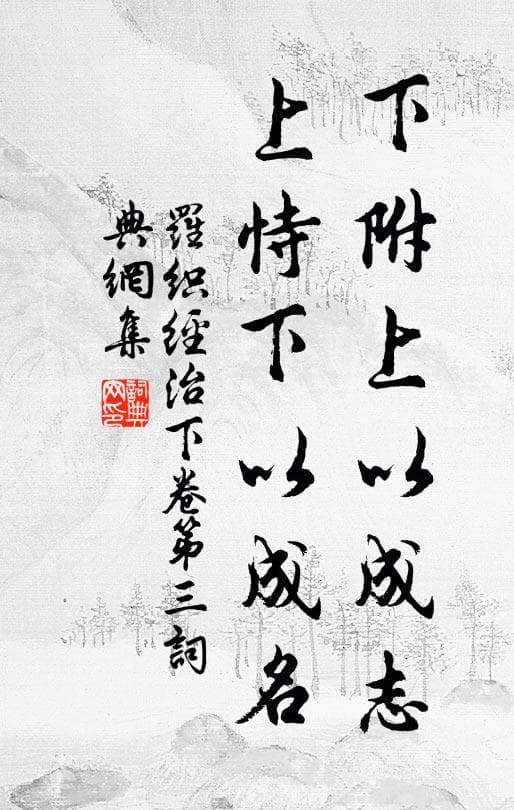 下附上以成志
上恃下以成名
羅织經治下卷第三詞
典網集
詞典網印